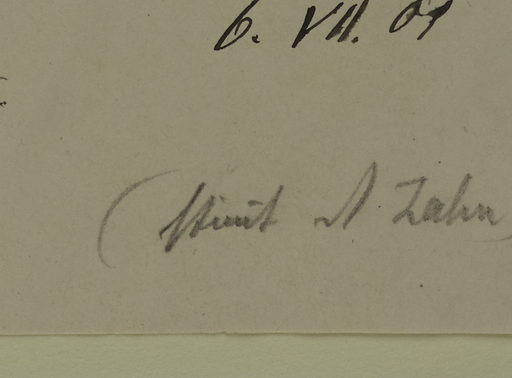 6. VII. 09
(stimt A Zahn)